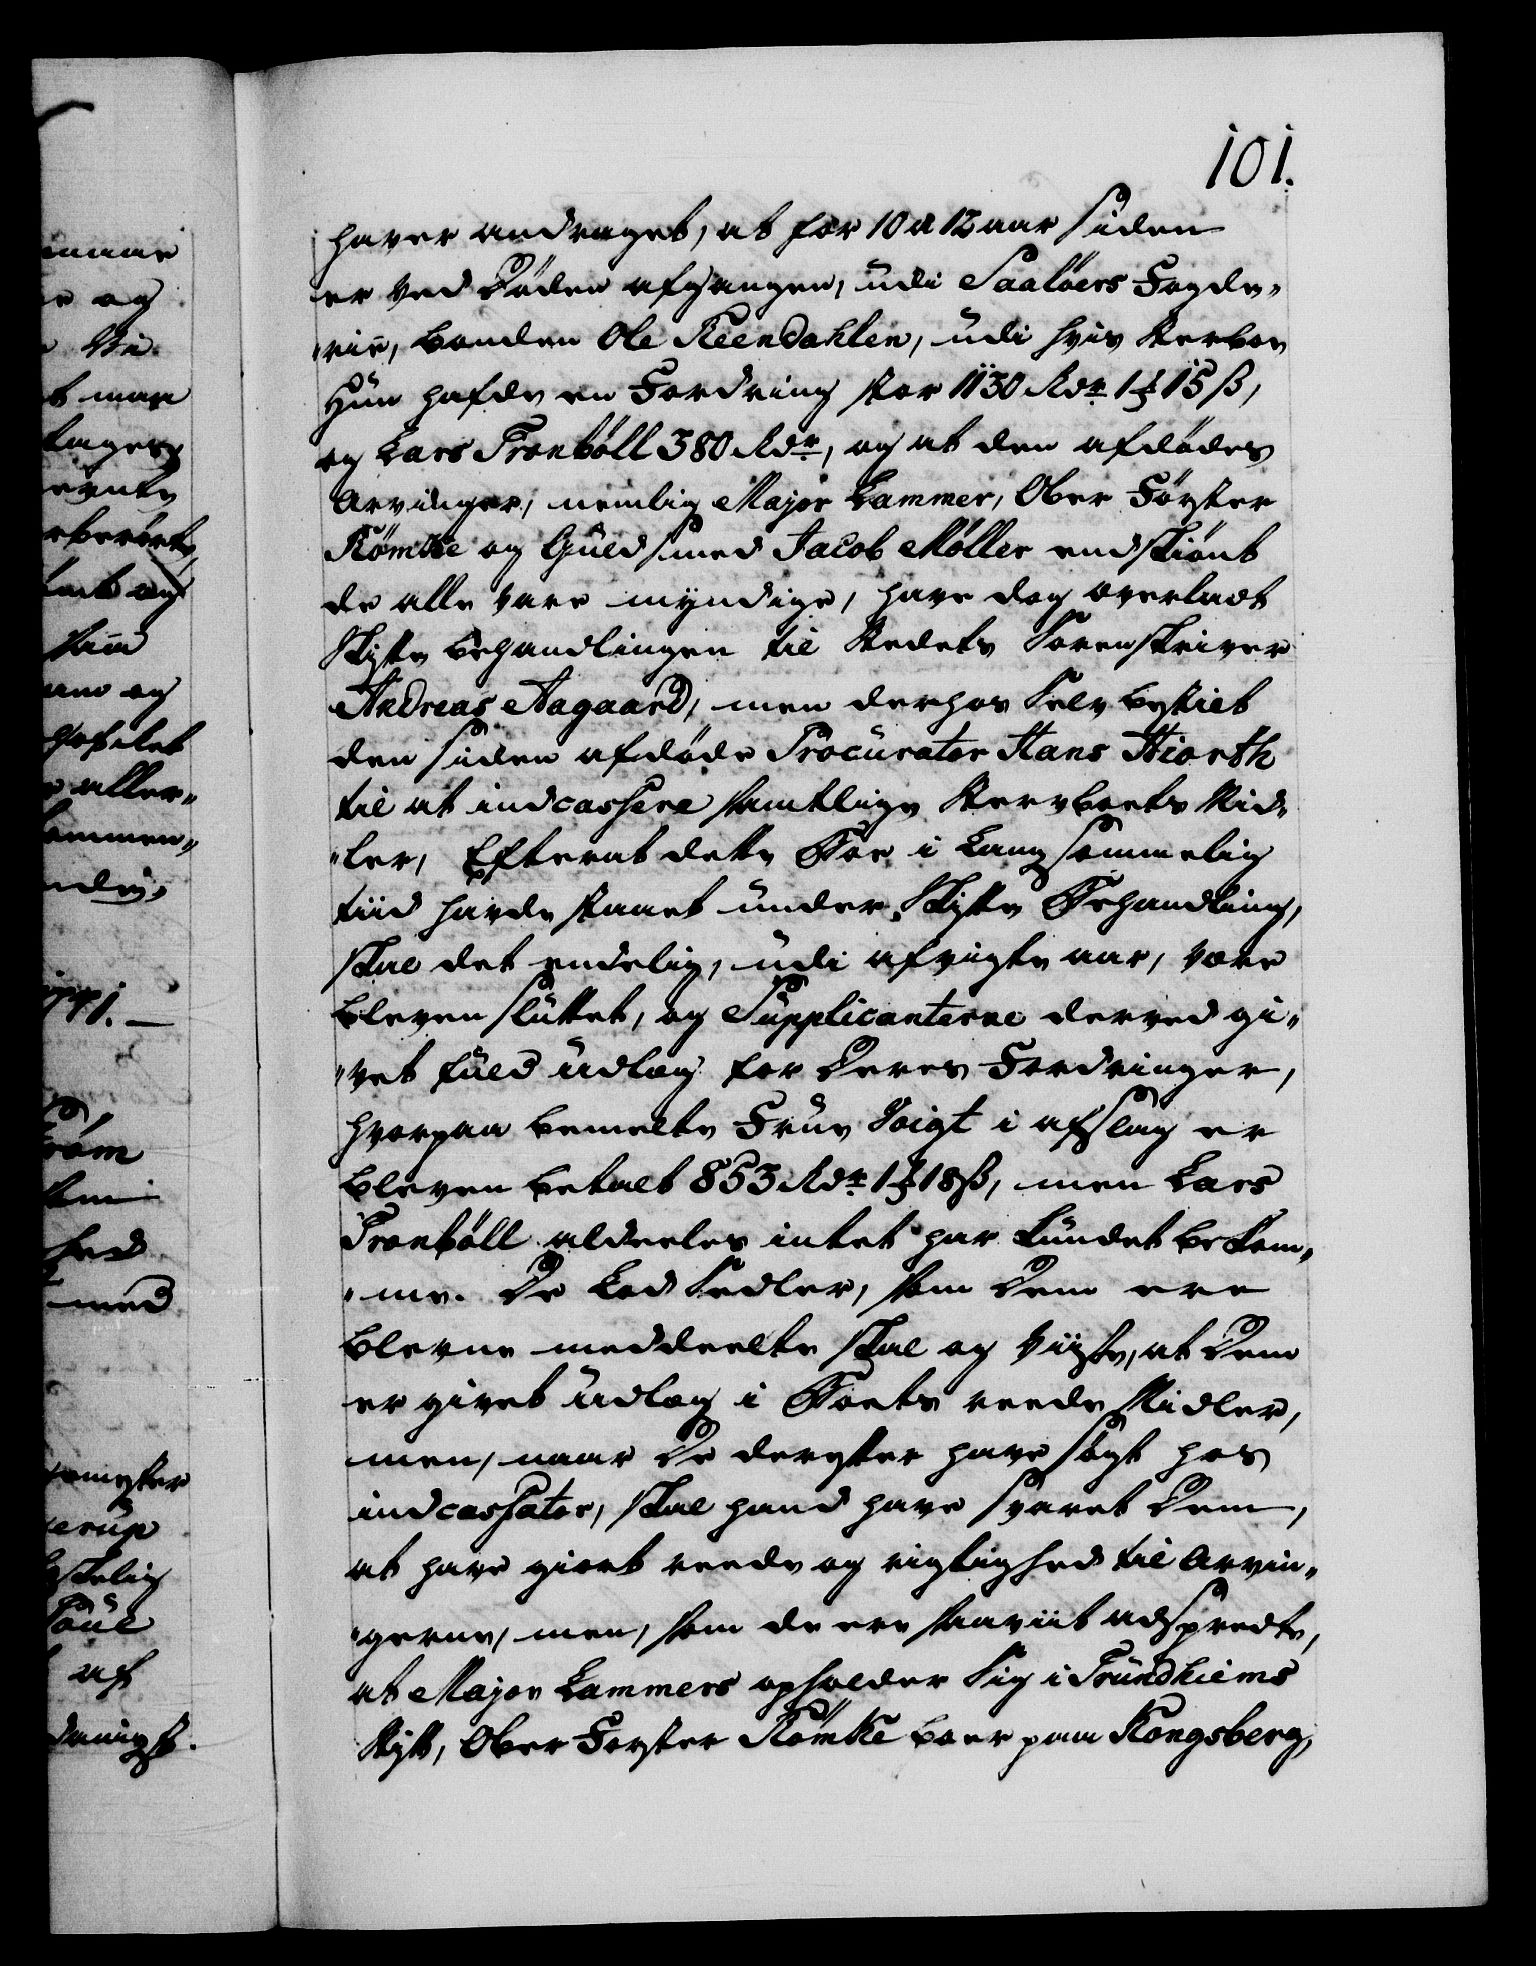 101.
haver andraget, at for 10 a 12 aar siden
er ved Døden afgangen, udi Saaløers Fogde„
„rie, bonden Ole Reendahlen, udi hvis Sterboe
Hun hafde en Fordring stor 1130 Rdr 1 ß 15 ß,
og Lars Tronbøll 380 Rdr, og at den afdødes
Arvinger, nemlig Major Lammer, Ober Førster
Rømcke og Guldsmed Jacob Møller endskiønt
de alle vare myndige, have dog overladt
Skifte behandlingen til Stedets Sorenskriver
Andreas Aagaard, men derhos selv beskiket
den siden afdøde Procurator Hans Hiorth
til at indcassere samtlige Stervboets Mid„
„ler, Efterat dette Boe i Langsommelig
tiid havde staaet under Skifte Behandling,
skal det endelig, udi afvigte aar, være
bleven sluttet, og Supplicanterne derved gi„
„vet fuld udlæg for Deres Fordringer,
hvorpaa bemelte Frue Voigt i afslag er
bleven betalt 853 Rdr 1 ß 18 ß, men Lars
Tronbøll aldeeles intet har kundet bekom„
„me. De Lod Sedler, som Dem ere
blevne meddeelte skal og viise, at Dem
er givet udlæg i Boets reede Midler,
men, naar De derefter have søgt hos
indcassator, skal hand have svaret Dem,
at have giort reede og rigtighed til Arvin„
„gerne, men, som de ere saaviit adspredte,
at Major Lammers opholder sig i Trundhiems
Stift, Ober Forster Rømcke boer paa Kongsberg,